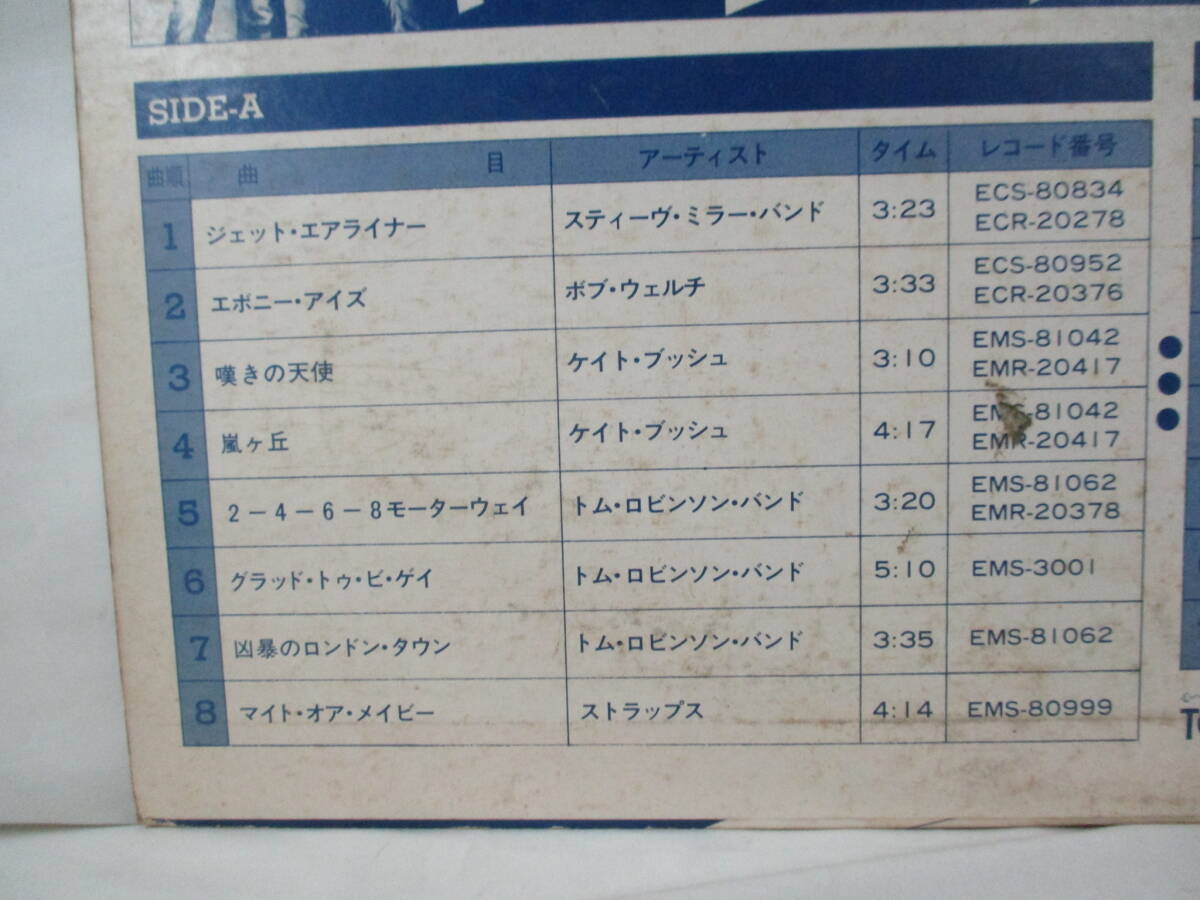 SIDE-A
曲順 曲 目 アーティスト タイム レコード番号
1 ジェット・エアライナー スティーヴ・ミラー・バンド 3:23 ECS-80834
ECR-20278
2 エボニー・アイズ ボブ・ウェルチ 3:33 ECS-80952
ECR-20376
3 嘆きの天使 ケイト・ブッシュ 3:10 EMS-81042
EMR-20417
4 嵐ヶ丘 ケイト・ブッシュ 4:17 EMS-81042
EMR-20417
5 2-4-6-8モーターウェイ トム・ロビンソン・バンド 3:20 EMS-81062
EMR-20378
6 グラッド・トゥ・ビ・ゲイ トム・ロビンソン・バンド 5:10 EMS-3001
7 凶暴のロンドン・タウン トム・ロビンソン・バンド 3:35 EMS-81062
8 マイト・オア・メイビー ストラップス 4:14 EMS-80999